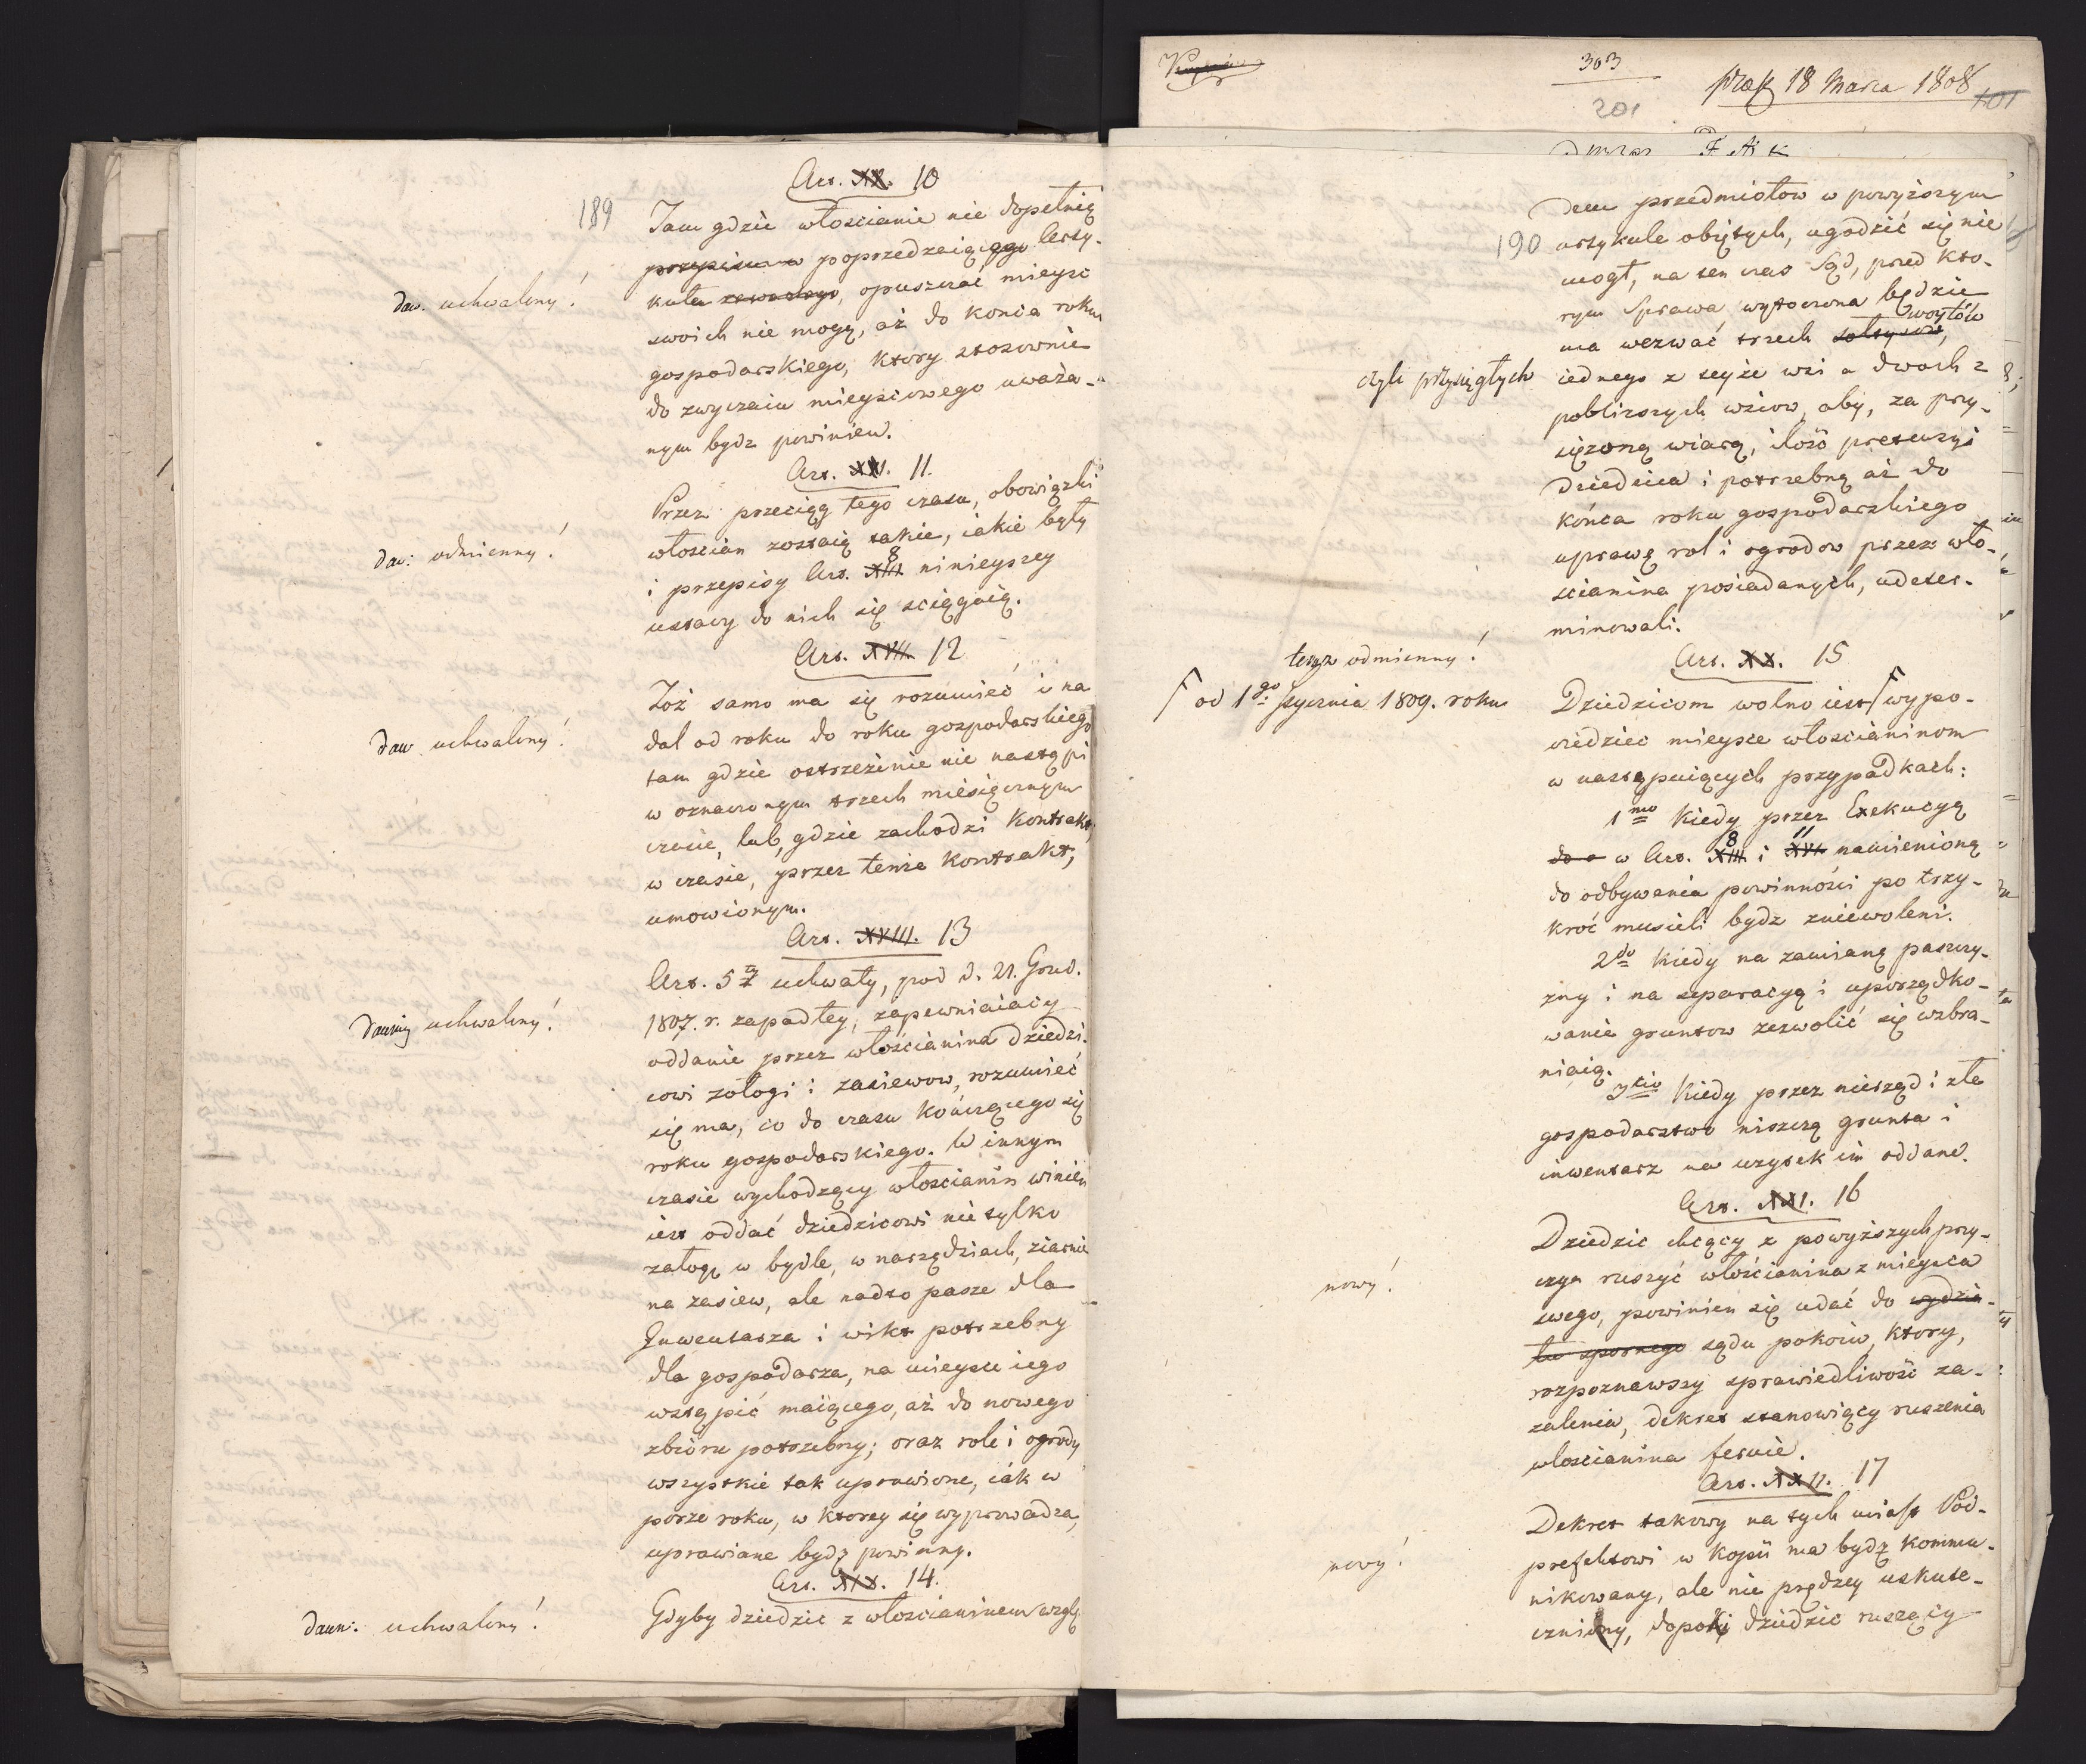 189
Art. XV. 10
Tam gdzie włoscianie nie dopełnią
przepisów poprzedzaiącego Arty-
kułu, opuszczać mieysc
swoich nie mogą, aż do końca roku
gospodarskiego, ktory stosownie
do zwyczaiu mieyscowego uważa-
nym bydz powinien.
daw. uchwalony!
Art. XVI. 11.
Przez przeciąg tego czasu, obowiązki
włoscian zostaią takie, iakie były
i przepisy Art. XIII. 8 ninieyszey
ustawy do nich się sciągaią.
daw: odmienny!
Art. XVII. 12
Toż samo ma się rozumieć i na
dal od roku do roku gospodarskiego
tam gdzie ostrzeżenie nie nastąpi
w oznaczonym trzech miesięcznym
czasie, lub, gdzie zachodzi Kontrakt,
w czasie, przez tenże Kontrakt,
umowionym.
daw uchwalony!
Art. XVIII. 13
Art. 5ty uchwały, pod d. 21. Grud.
1807. r. zapadłey, zapewniaiący
oddanie przez włościanina dziedzi-
cowi załogi i zasiewow, rozumieć
się ma, co do czasu kończącego się
roku gospodarskiego. W innym
czasie wychodzący włoscianin winien
iest oddać dziedzicowi nie tylko
załogę w bydle, w narzędziach, ziarnie
na zasiew, ale nadto pasze dla
Inwentarza i wikt potrzebny
dla gospodarza, na mieysce iego
wstąpić maiącego, aż do nowego
zbioru potrzebny; oraz role i ogrody
wszystkie tak uprawione, iak w
porze roku, w ktorey się wyprowadza,
uprawiane bydz powinny.
dawniey uchwalony!
Art. XIX. 14.
Gdyby dziedzic z włoscianinem wzglę-
dawn: uchwalony!
303
201
18 Marca 1808
101
190
dem przedmiotow w powyższym
artykule obiętych, ugodzić się nie
mogł, na ten czas Sąd, przed kto-
rym Sprawa wytoczona będzie
ma wezwać trzech sołtysow, woytów
czyli przysięgłych
iednego z teyże wsi a dwoch z
pobliższych wsiow, aby, za przy-
siężoną wiarą, ilość pretensyi
Dziedzica i potrzebną aż do
końca roku gospodarskiego
uprawę rol i ogrodow przez wło-
scianina posiadanych, udeter-
minowali.
Art. XX. 15
teraz odmienny!
od 1go stycznia 1809. roku
Dziedzicom wolno iest wypo-
wiedziec mieysce włoscianinom
w następuiących przypadkach:
1mo Kiedy przez Exekucyą
w Art. XIII. 8 i XVI. 11 namienioną
do odbywania powinności po trzy-
kroć musieli bydz zniewoleni.
2do Kiedy na zamianę paszczy-
zny i na separacyą i uporządko-
wanie gruntow zezwolić się wzbra-
niaią.
3tio Kiedy przez nierząd i złe
gospodarstwo niszczą grunta i
inwentarz na użytek im oddane.
Art. XXI. 16
Dziedzic chcący z powyższych przy-
czyn ruszyć włościanina z mieysca
swego, powinien się udać do wydzia-
łu spornego sądu pokoiu, ktory,
rozpoznawszy sprawiedliwość za-
żalenia, dekret stanowiący ruszenia
włoscianina feruie.
nowy!
Art. XXII. 17
Dekret takowy na tych miast Pod-
prefektowi w Kopii ma bydz kommu-
nikowany, ale nie prędzey uskute-
czniony, dopoki dziedzic ruszący
nowy!